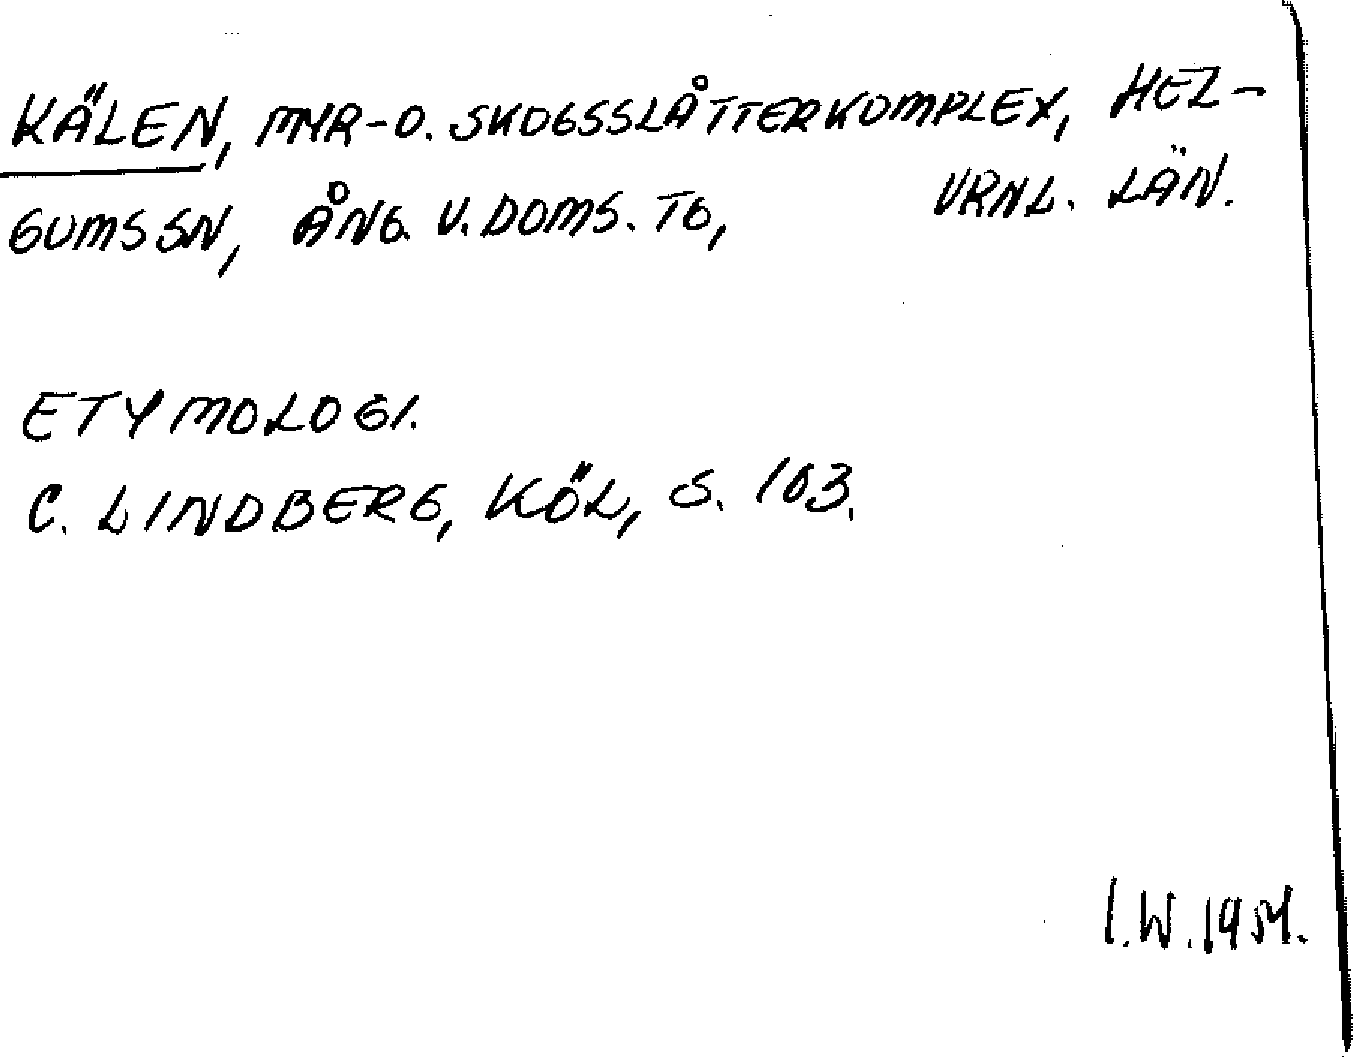 KÄLEN, MYR-O. SKOGSSLÅTTERKOMPLEX, HEL-
GUMS SN, ÅNG. V. DOMS. TG, VRNL. LÄN.
ETYMOLOGI.
C. LINDBERG, KÖL, S. 103.
I.W. 1954.